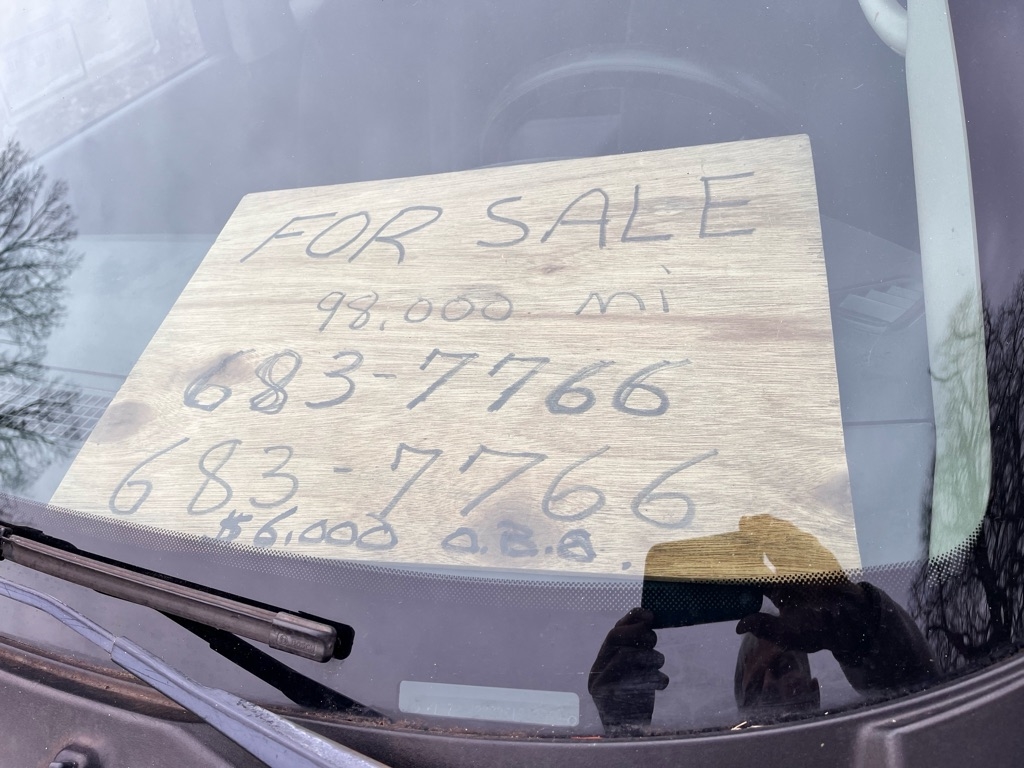 FOR SALE
98,000 mi
683-7766
683-7766
$6,000 O.B.O.